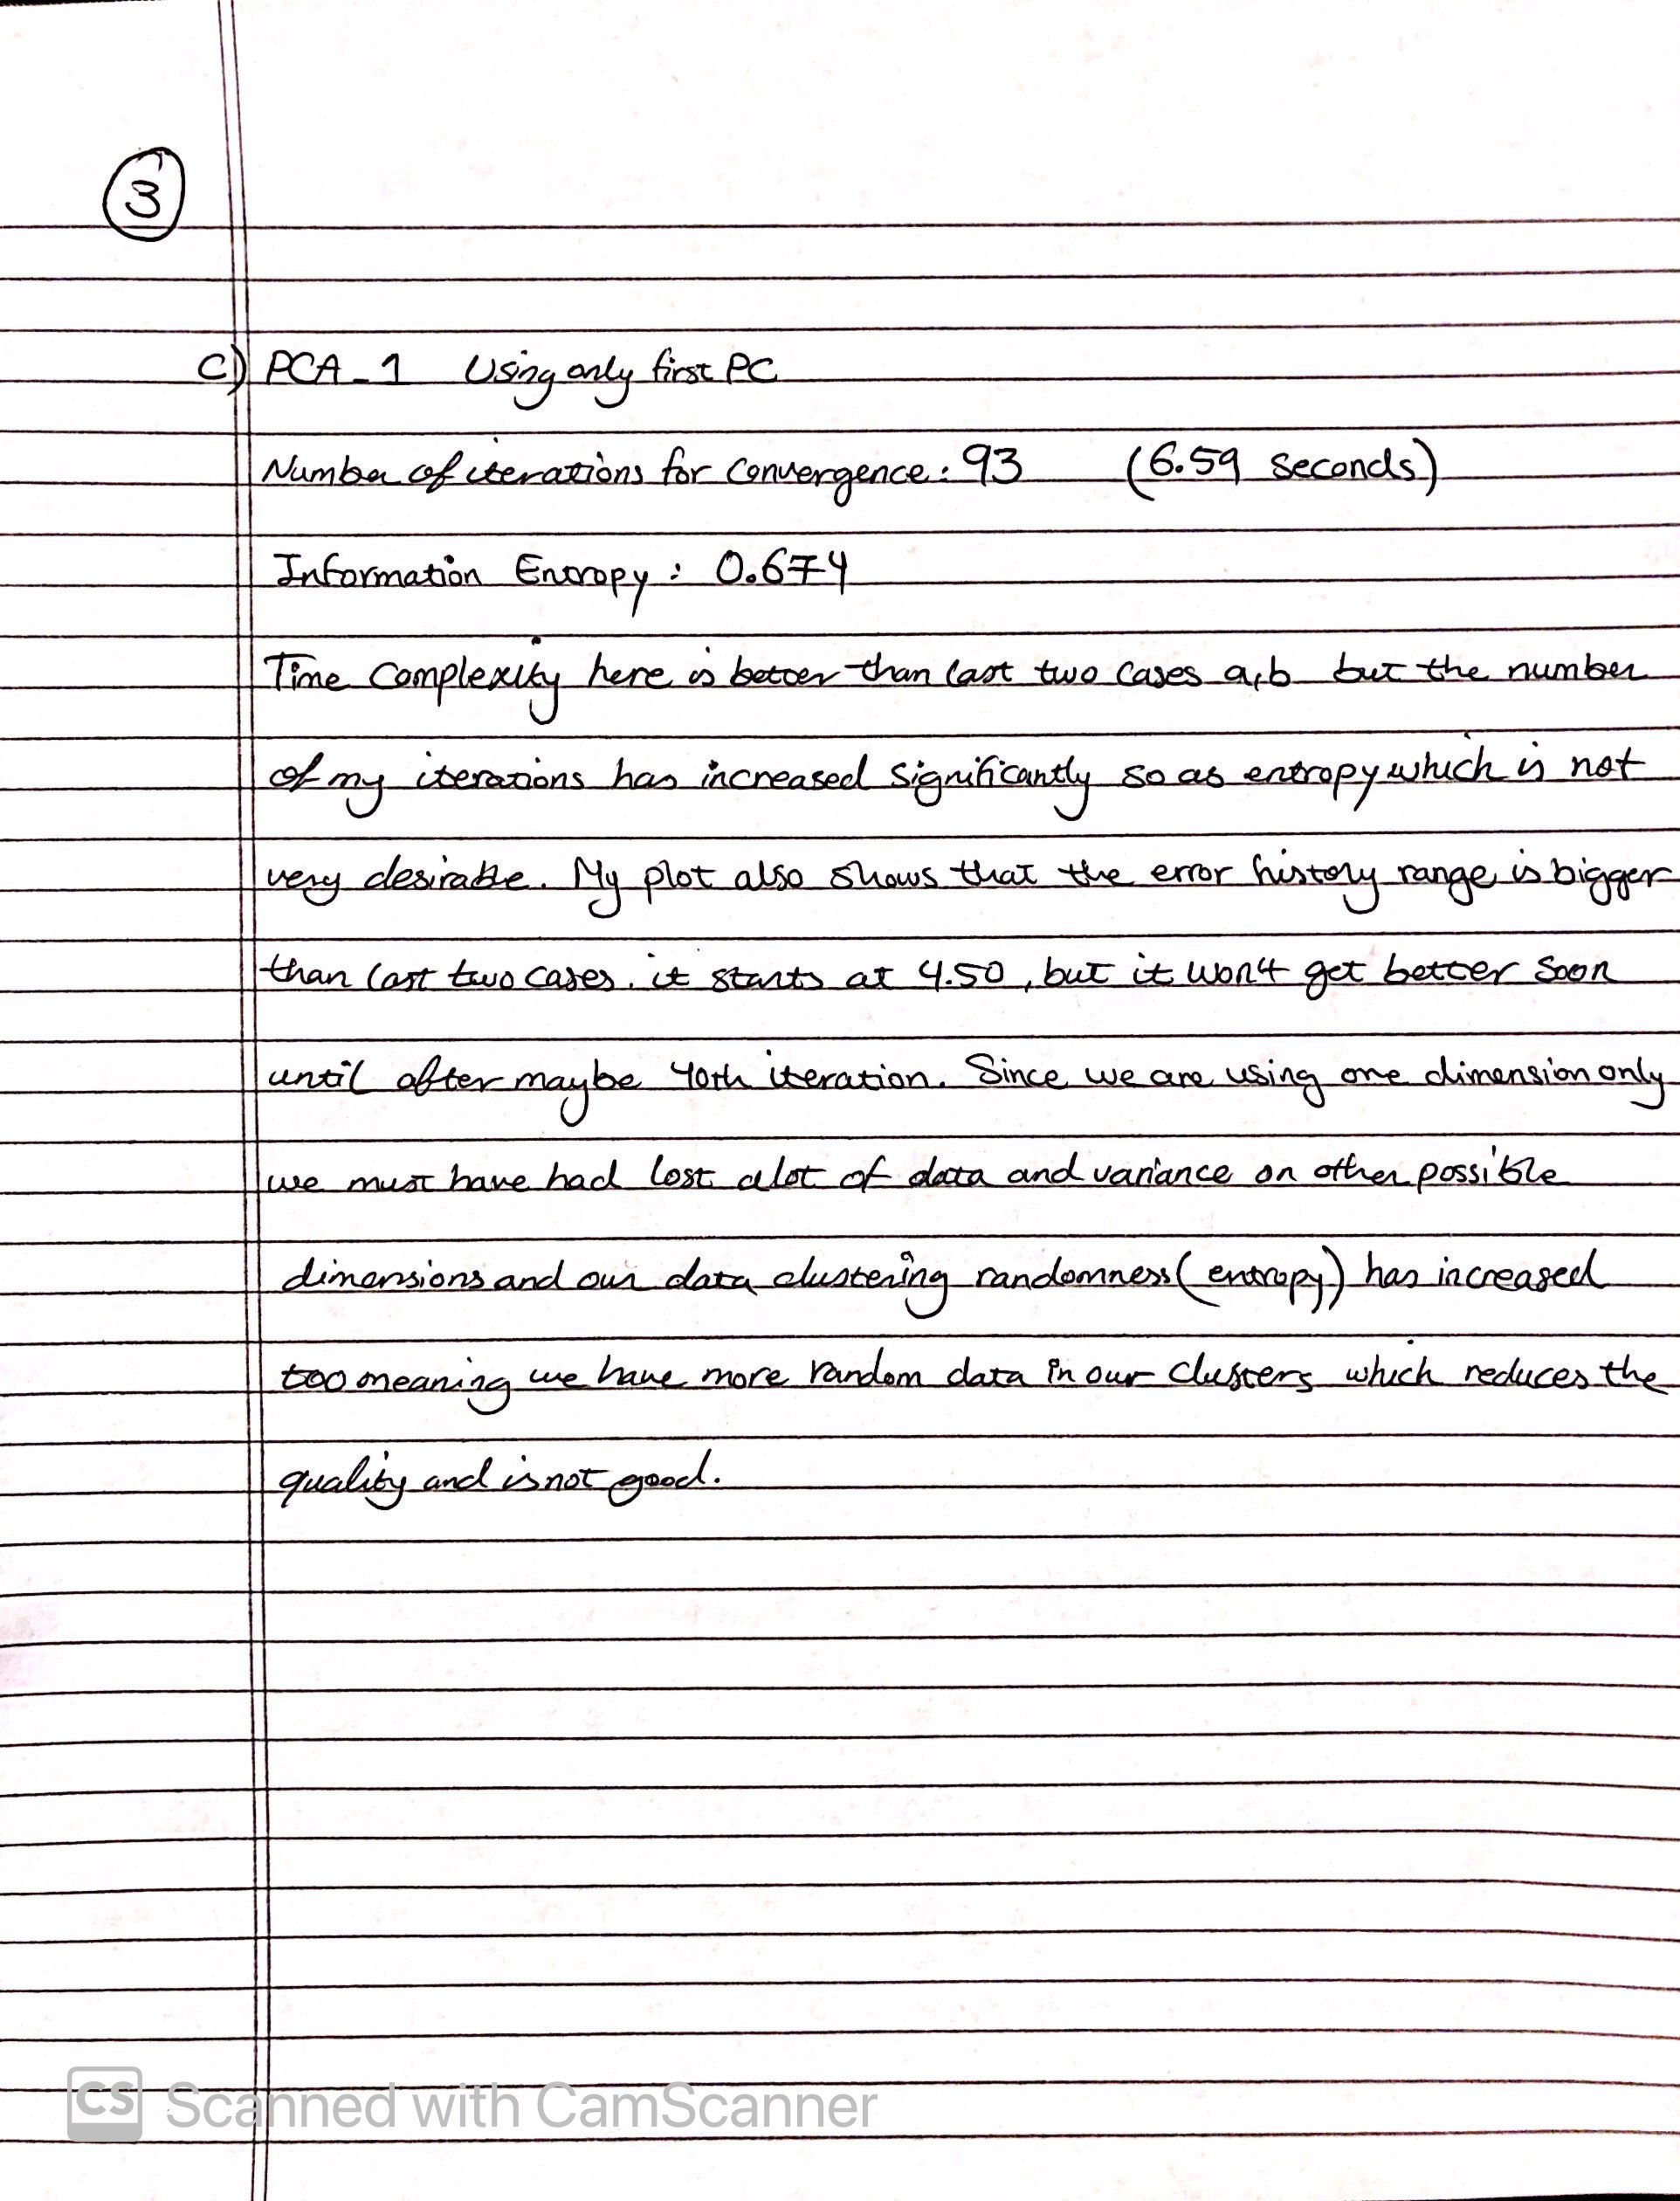 3
c) PCA_1 Using only first PC
Number of iterations for Convergence: 93 (6.59 seconds)
Information Entropy: 0.674
Time Complexity here is better than last two cases a,b but the number
of my iterations has increased significantly so as entropy which is not
very desirable. My plot also shows that the error history range is bigger
than last two cases. it starts at 4.50, but it won't get better soon
until after maybe 40th iteration. Since we are using one dimension only
we must have had lost alot of data and variance on other possible
dimensions and our data clustering randomness (entropy) has increased
too meaning we have more random data in our clusters which reduces the
quality and is not good.
CS Scanned with CamScanner